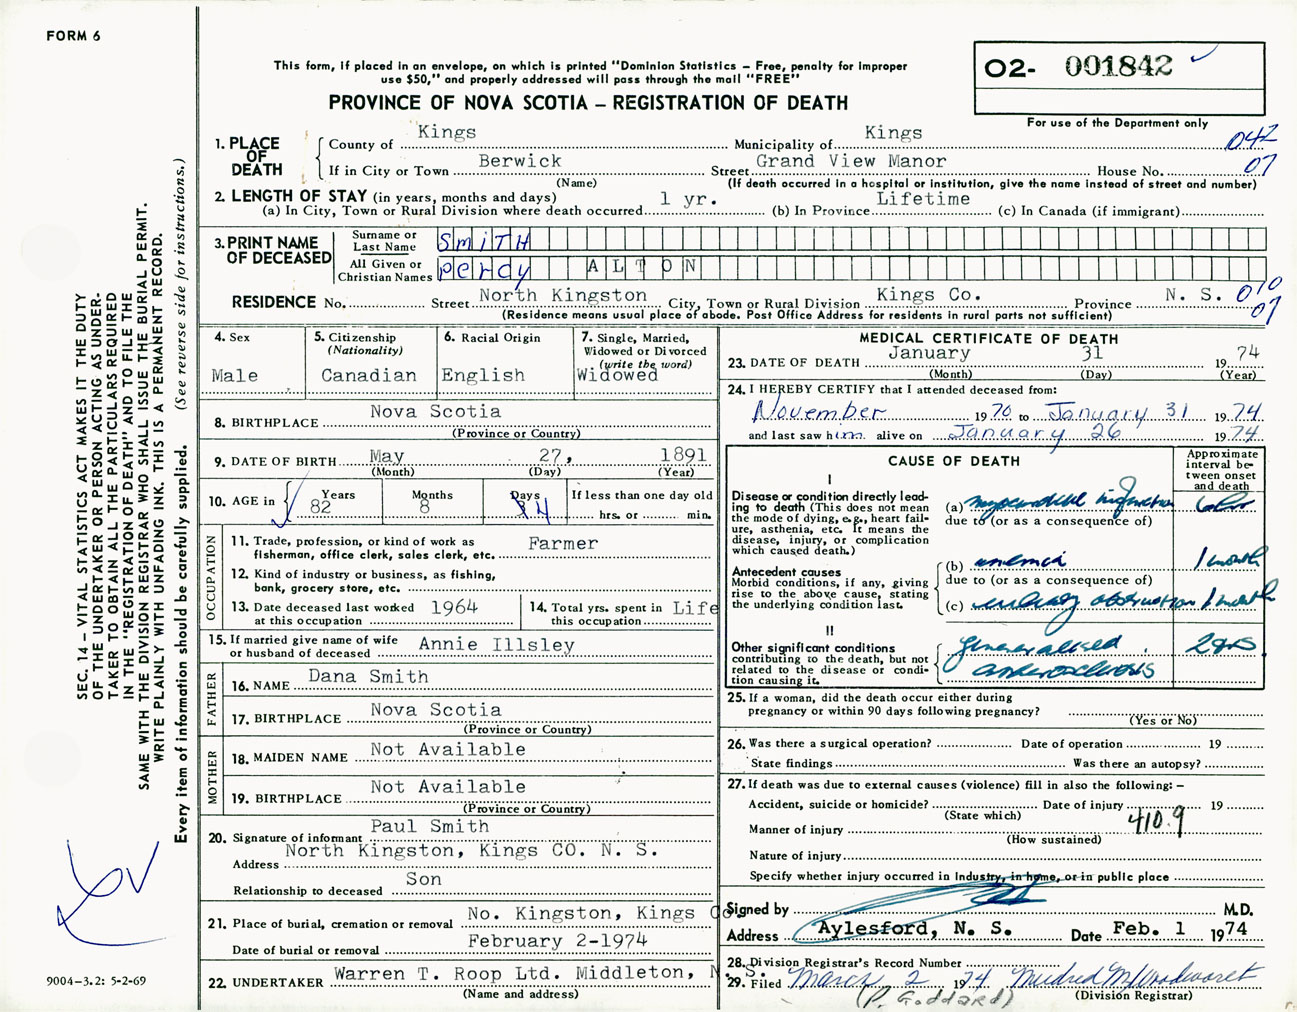 FORM 6
This form, if placed in an envelope, on which is printed "Dominion Statistics – Free, penalty for improper
use $50," and properly addressed will pass through the mail "FREE"
PROVINCE OF NOVA SCOTIA – REGISTRATION OF DEATH
02- 001842
For use of the Department only
SEC. 14 – VITAL STATISTICS ACT MAKES IT THE DUTY
OF THE UNDERTAKER OR PERSON ACTING AS UNDER-
TAKER TO OBTAIN ALL THE PARTICULARS REQUIRED
IN THE "REGISTRATION OF DEATH" AND TO FILE THE
SAME WITH THE DIVISION REGISTRAR WHO SHALL ISSUE THE BURIAL PERMIT.
WRITE PLAINLY WITH UNFADING INK. THIS IS A PERMANENT RECORD.
Every item of information should be carefully supplied. (See reverse side for instructions.)
1. PLACE OF DEATH
County of Kings Municipality of Kings 042
If in City or Town Berwick Street Grand View Manor House No. 07
(Name) (If death occurred in a hospital or institution, give the name instead of street and number)
2. LENGTH OF STAY (in years, months and days)
(a) In City, Town or Rural Division where death occurred 1 yr. (b) In Province Lifetime (c) In Canada (if immigrant)
3. PRINT NAME OF DECEASED
Surname or Last Name SmiTH
All Given or Christian Names percy ALTON
RESIDENCE No. Street North Kingston City, Town or Rural Division Kings Co. Province N. S. 070
07
(Residence means usual place of abode. Post Office Address for residents in rural parts not sufficient)
4. Sex
Male
5. Citizenship
(Nationality)
Canadian
6. Racial Origin
English
7. Single, Married,
Widowed or Divorced
(write the word)
Widowed
8. BIRTHPLACE Nova Scotia
(Province or Country)
9. DATE OF BIRTH May 27, 1891
(Month) (Day) (Year)
10. AGE in Years 82 Months 8 Days 4 If less than one day old
hrs. or min.
OCCUPATION
11. Trade, profession, or kind of work as
fisherman, office clerk, sales clerk, etc. Farmer
12. Kind of industry or business, as fishing,
bank, grocery store, etc.
13. Date deceased last worked
at this occupation 1964
14. Total yrs. spent in
this occupation Life
15. If married give name of wife
or husband of deceased Annie Illsley
FATHER
16. NAME Dana Smith
17. BIRTHPLACE Nova Scotia
(Province or Country)
MOTHER
18. MAIDEN NAME Not Available
19. BIRTHPLACE Not Available
(Province or Country)
20. Signature of informant Paul Smith
Address North Kingston, Kings CO. N. S.
Relationship to deceased Son
21. Place of burial, cremation or removal No. Kingston, Kings Co
Date of burial or removal February 2-1974
22. UNDERTAKER Warren T. Roop Ltd. Middleton, N. S.
(Name and address)
9004-3.2: 5-2-69
MEDICAL CERTIFICATE OF DEATH
23. DATE OF DEATH January 31 1974
(Month) (Day) (Year)
24. I HEREBY CERTIFY that I attended deceased from:
November 1970 to January 31 1974
and last saw him alive on January 26 1974
CAUSE OF DEATH
Approximate
interval be-
tween onset
and death
I
Disease or condition directly lead-
ing to death (This does not mean
the mode of dying, e.g., heart fail-
ure, asthenia, etc. It means the
disease, injury, or complication
which caused death.)
(a) myocardial infarction
due to (or as a consequence of)
Antecedent causes
Morbid conditions, if any, giving
rise to the above cause, stating
the underlying condition last.
(b) anemia 1 month
due to (or as a consequence of)
(c) urinary obstruction 1 month
II
Other significant conditions
contributing to the death, but not
related to the disease or condi-
tion causing it.
generalised 2 yrs
25. If a woman, did the death occur either during
pregnancy or within 90 days following pregnancy?
(Yes or No)
26. Was there a surgical operation? Date of operation 19
State findings Was there an autopsy?
27. If death was due to external causes (violence) fill in also the following: –
Accident, suicide or homicide? Date of injury 19
(State which)
Manner of injury 410.9
(How sustained)
Nature of injury
Specify whether injury occurred in industry, in home, or in public place
Signed by M.D.
Address Aylesford, N. S. Date Feb. 1 1974
28. Division Registrar's Record Number
29. Filed March 2 1974 Mildred M Woodworth
(P. Goddard) (Division Registrar)